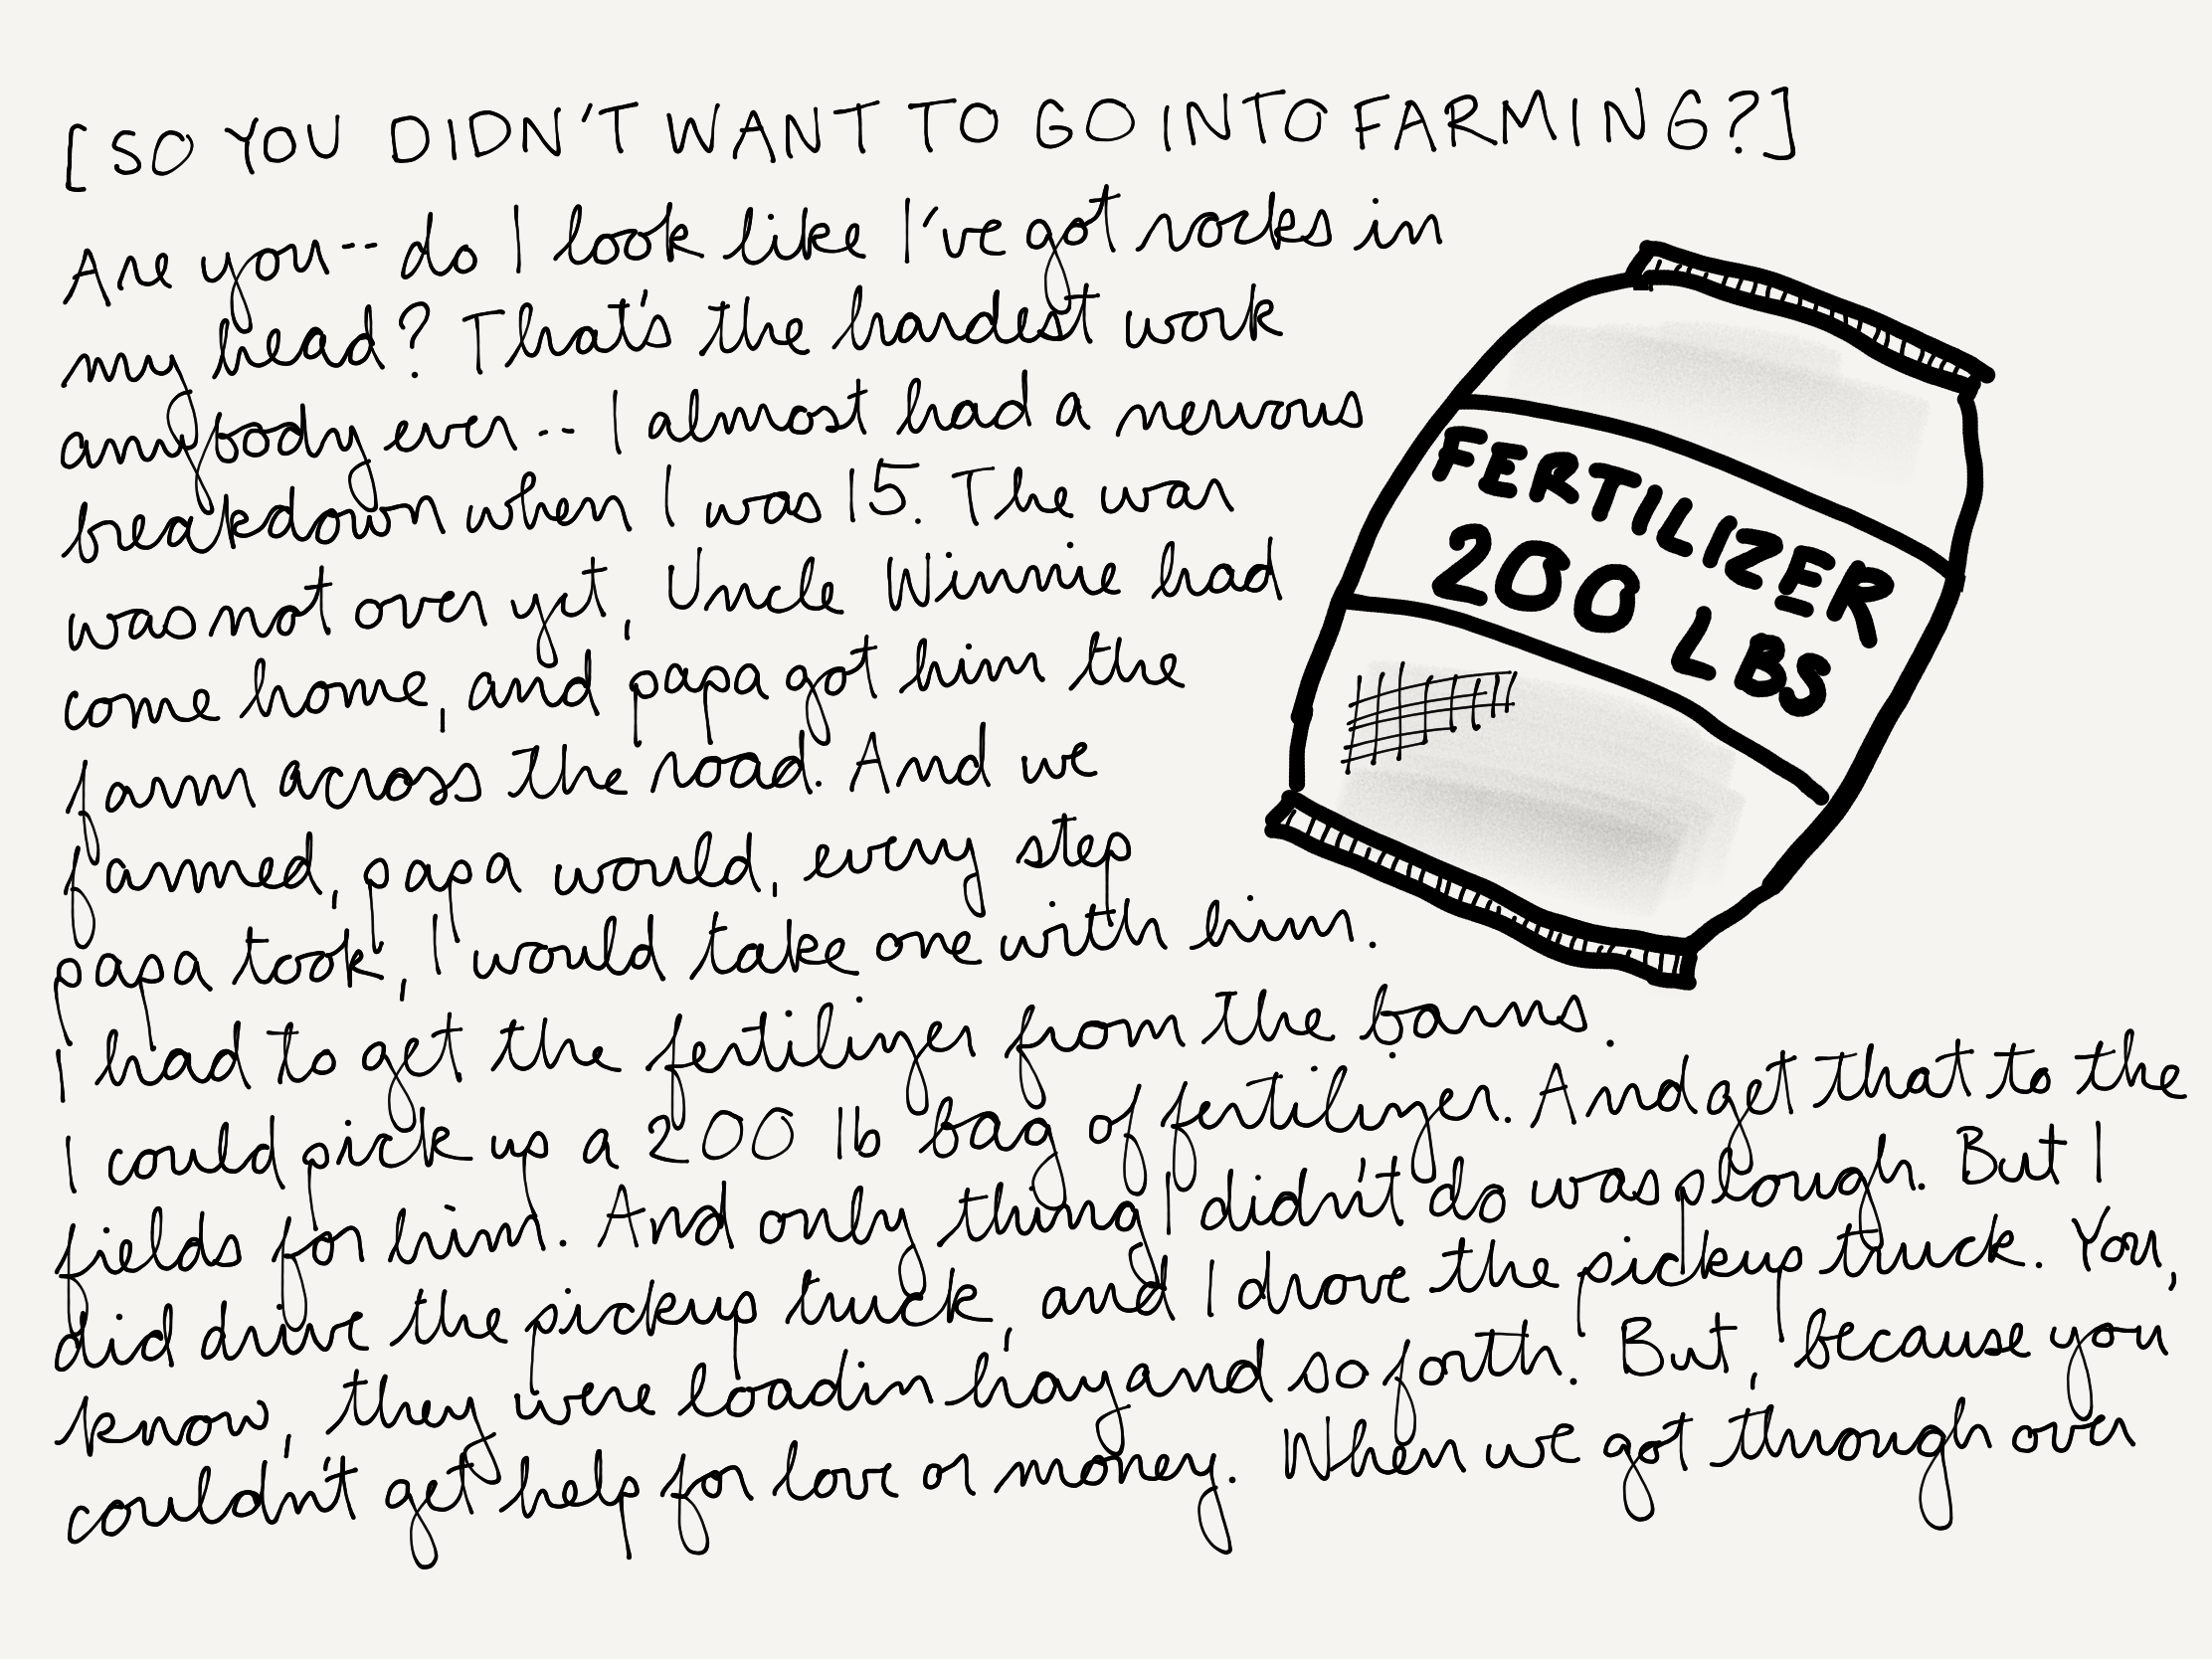 [SO YOU DIDN'T WANT TO GO INTO FARMING?]
Are you-- do I look like I've got rocks in
my head? That's the hardest work
anybody ever -- I almost had a nervous
breakdown when I was 15. The war
was not over yet, Uncle Winnie had
come home, and papa got him the
farm across the road. And we
farmed, papa would, every step
papa took, I would take one with him.
I had to get the fertilizer from the barns.
I could pick up a 200 lb bag of fertilizer. And get that to the
fields for him. And only thing I didn't do was plough. But I
did drive the pickup truck, and I drove the pickup truck. You,
know, they were loadin hay and so forth. But, because you
couldn't get help for love or money. When we got through over
FERTILIZER
200 LBS